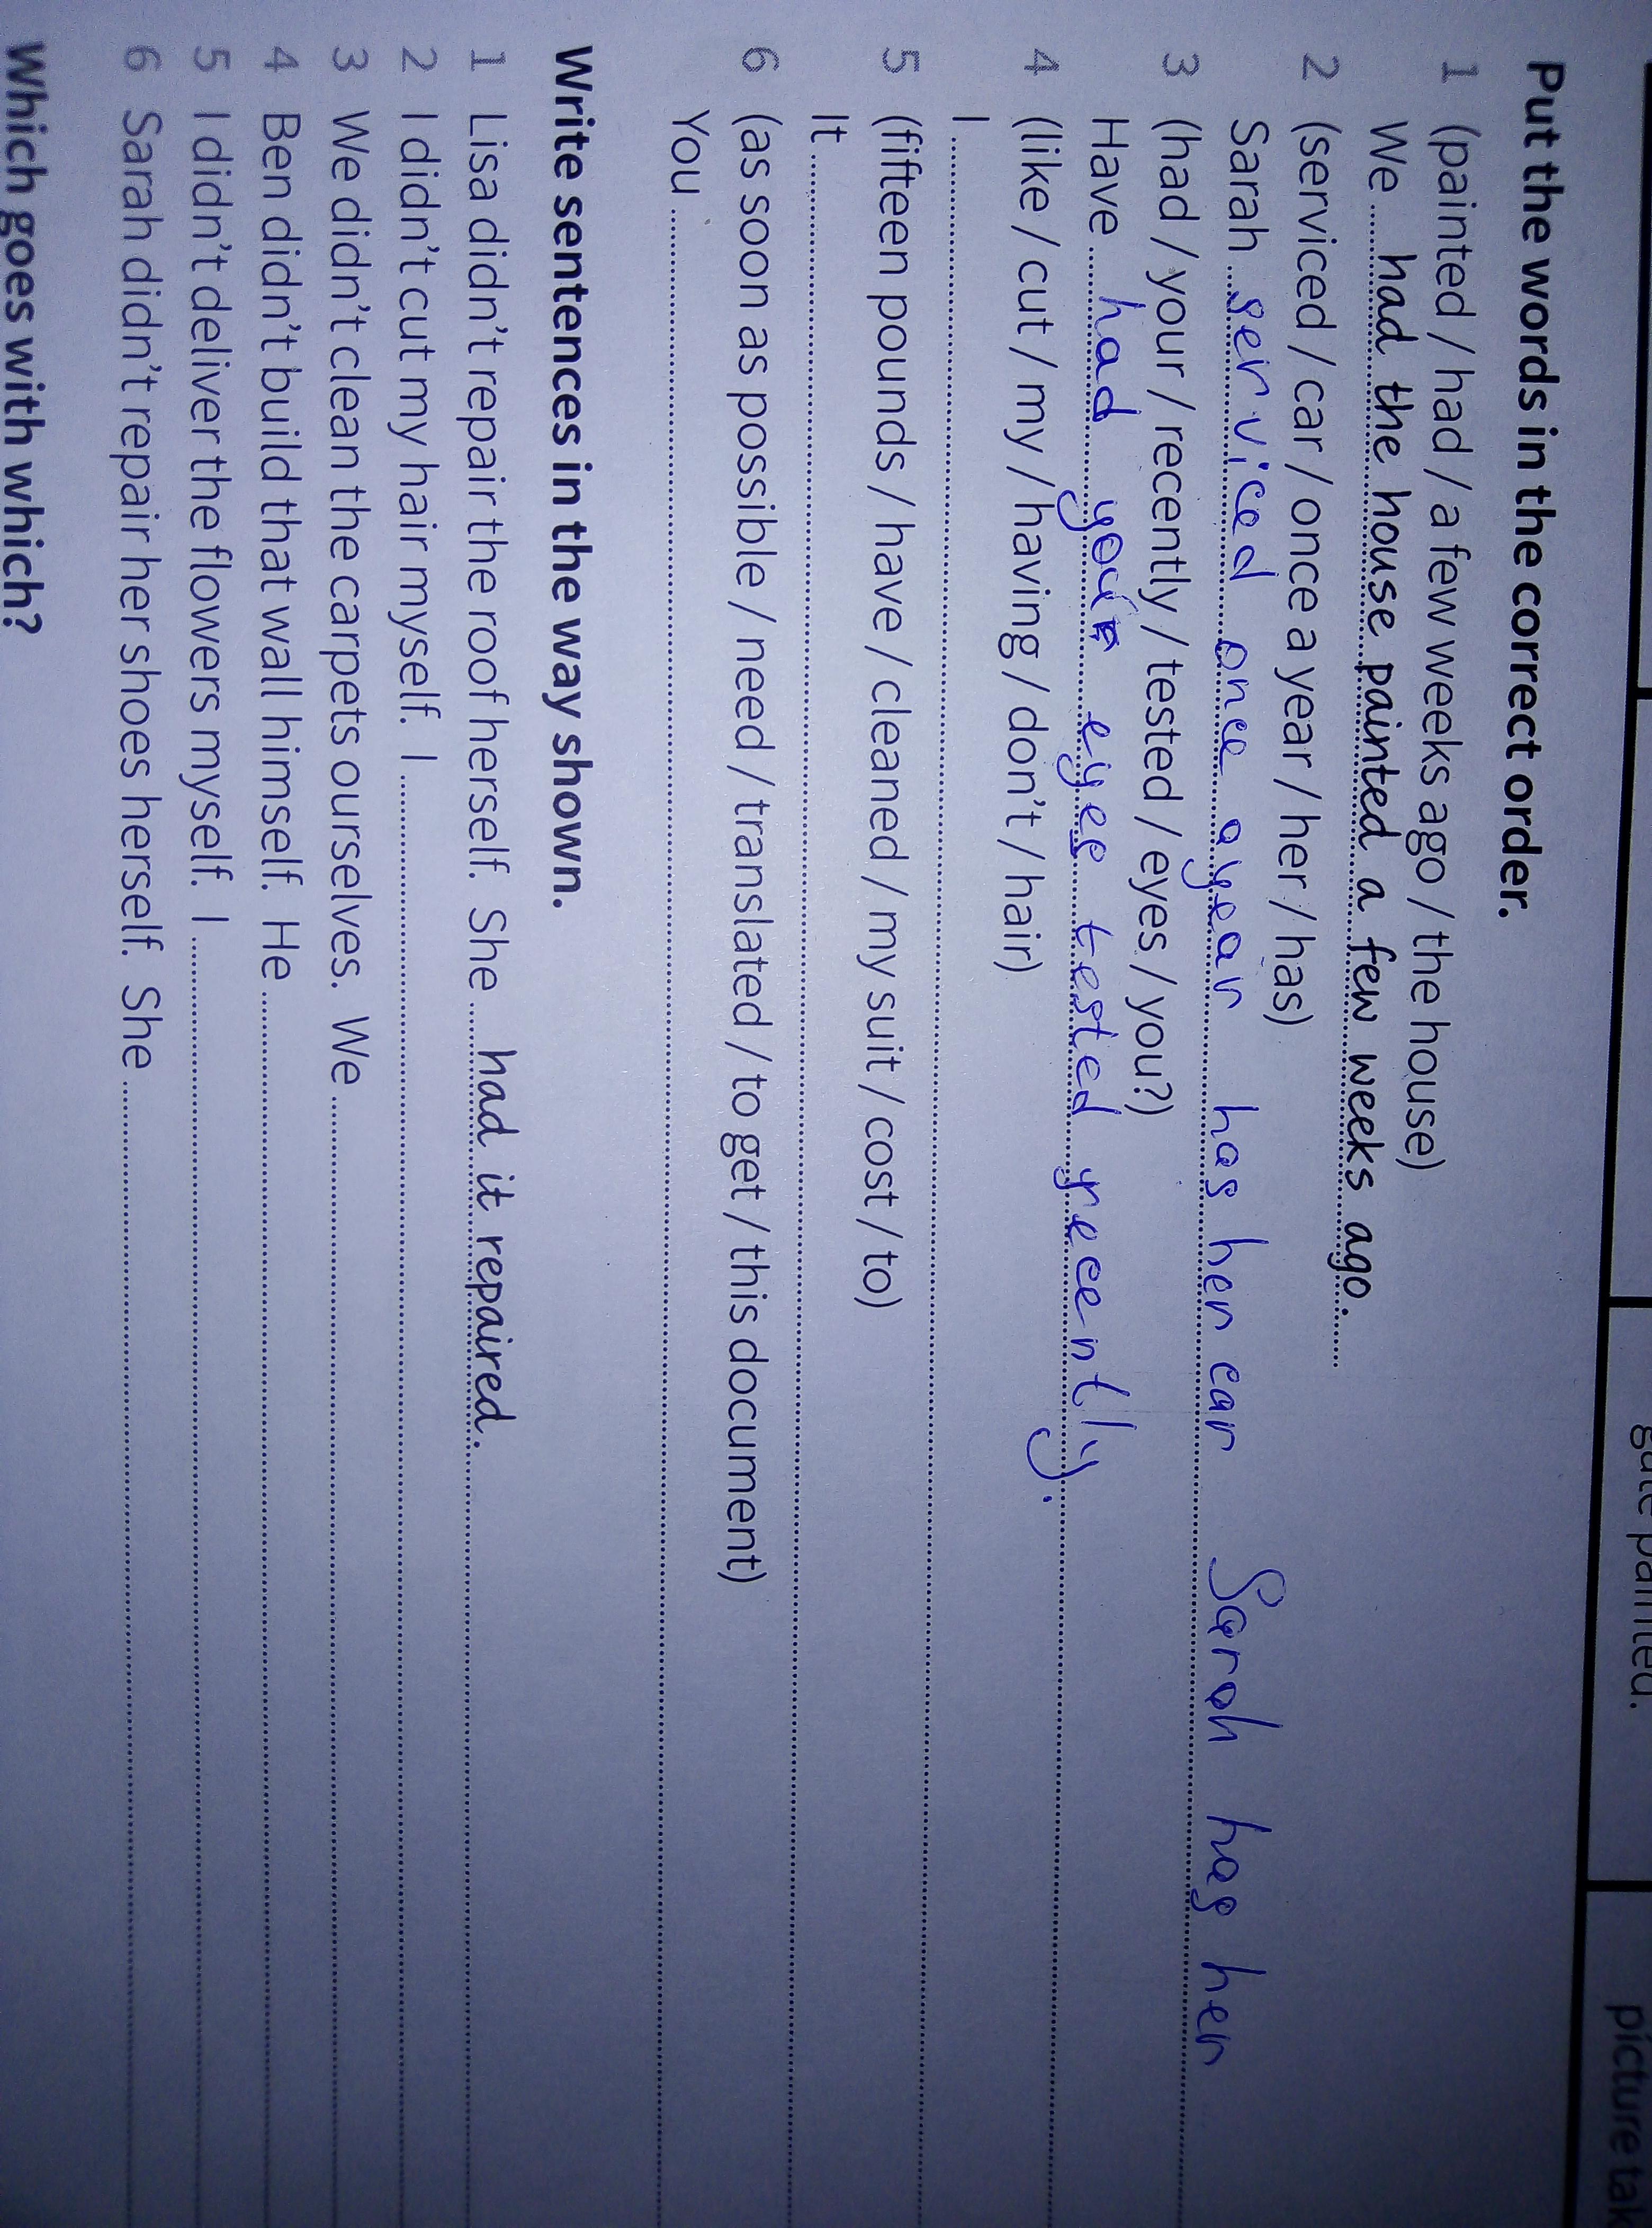 gate painted.
picture tak
Put the words in the correct order.
1 (painted / had / a few weeks ago / the house)
We had the house painted a few weeks ago.
2 (serviced / car / once a year / her / has)
Sarah serviced once a year has her car Sarah has her
3 (had / your / recently / tested / eyes / you?)
Have had your eyes tested recently.
4 (like / cut / my / having / don't / hair)
I
5 (fifteen pounds / have / cleaned / my suit / cost / to)
It
6 (as soon as possible / need / translated / to get / this document)
You
Write sentences in the way shown.
1 Lisa didn't repair the roof herself. She had it repaired.
2 I didn't cut my hair myself. I
3 We didn't clean the carpets ourselves. We
4 Ben didn't build that wall himself. He
5 I didn't deliver the flowers myself. I
6 Sarah didn't repair her shoes herself. She
Which goes with which?